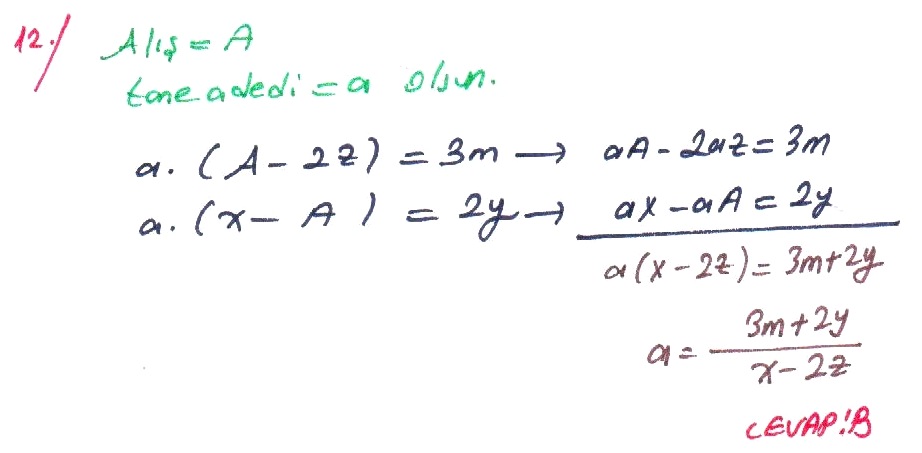 12./ Alış = A
tane adedi = a olsun.
a. (A - 2z) = 3m → aA - 2az = 3m
a. (x - A) = 2y → ax - aA = 2y
a(x - 2z) = 3m + 2y
a = 3m + 2y / x - 2z
CEVAP: B